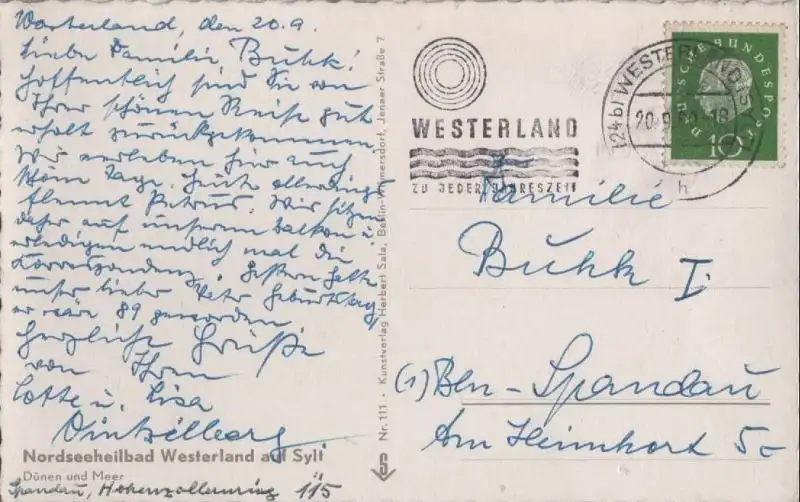 Westerland, den 20.9.
Liebe Familie Buhk!
Hoffentlich sind Sie von
Ihrer schönen Reise gut
erholt zurückgekommen.
Wir verleben hier auch
schöne Tage. Heute allerdings
flennt Petrus. Wir sitzen
daher auf unserem Balkon u.
erledigen endlich mal die
Korrespondenz. Gestern hatte
unser lieber Vater Geburtstag,
er wäre 89 geworden
Herzliche Grüße
von Ihren
Lotte u. Lisa
Nordseeheilbad Westerland auf Sylt
Dünen und Meer
Spandau, Hohenzollernring 115
Nr. 111 - Kunstverlag Herbert Sala, Berlin-Wilmersdorf, Jenaer Straße 7
WESTERLAND
ZU JEDER JAHRESZEIT
(24b) WESTERLAND (SYLT)
20.9.60-18
h
DEUTSCHE BUNDESPOST
BERLIN
10
Familie
Buhk I.
(1) Bln-Spandau
Am Heimhort 5c